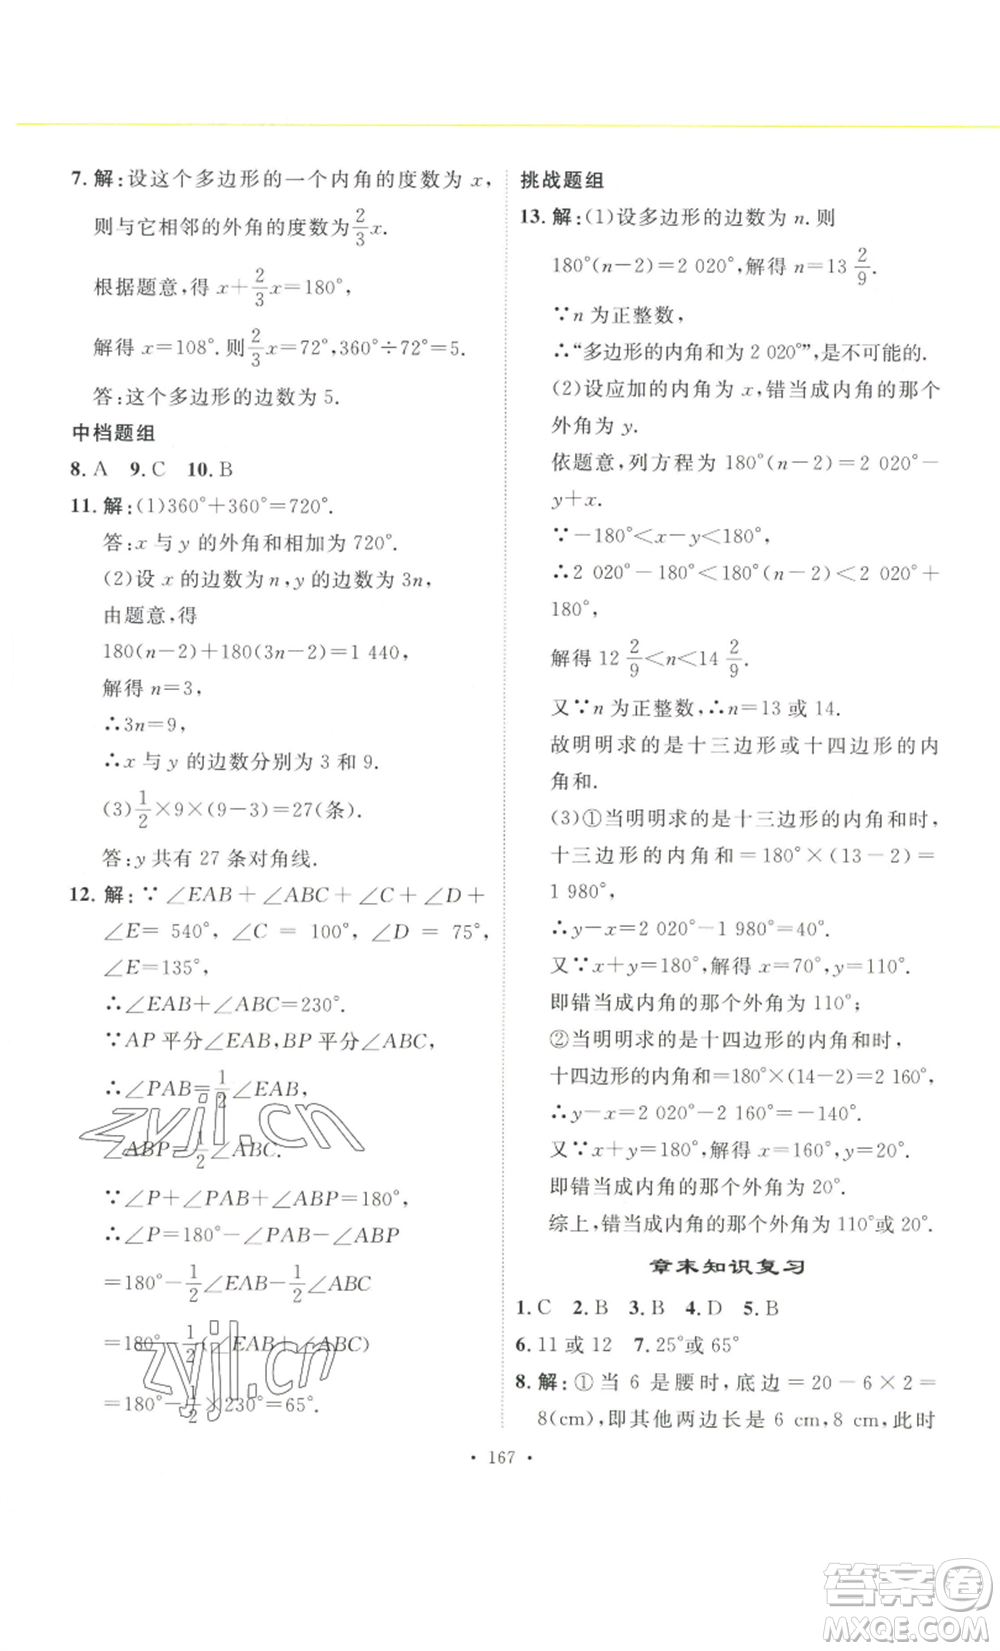 7. 解:设这个多边形的一个内角的度数为 x,
则与它相邻的外角的度数为 2/3 x.
根据题意,得 x+2/3 x=180°,
解得 x=108°.则 2/3 x=72°,360°÷72°=5.
答:这个多边形的边数为 5.
中档题组
8. A 9. C 10. B
11. 解:(1)360°+360°=720°.
答:x 与 y 的外角和相加为 720°.
(2)设 x 的边数为 n,y 的边数为 3n,
由题意,得
180(n-2)+180(3n-2)=1 440,
解得 n=3,
∴3n=9,
∴x 与 y 的边数分别为 3 和 9.
(3)1/2×9×(9-3)=27(条).
答:y 共有 27 条对角线.
12. 解:∵∠EAB+∠ABC+∠C+∠D+
∠E= 540°, ∠C = 100°, ∠D = 75°,
∠E=135°,
∴∠EAB+∠ABC=230°.
∵AP 平分∠EAB,BP 平分∠ABC,
∴∠PAB=1/2∠EAB,
∠ABP=1/2∠ABC.
∵∠P+∠PAB+∠ABP=180°,
∴∠P=180°-∠PAB-∠ABP
=180°-1/2∠EAB-1/2∠ABC
=180°-1/2(∠EAB+∠ABC)
=180°-1/2×230°=65°.
挑战题组
13. 解:(1)设多边形的边数为 n.则
180°(n-2)=2 020°,解得 n=13 2/9.
∵n 为正整数,
∴“多边形的内角和为 2 020°”,是不可能的.
(2)设应加的内角为 x,错当成内角的那个
外角为 y.
依题意,列方程为 180°(n-2)=2 020°-
y+x.
∵-180°<x-y<180°,
∴2 020°-180°<180°(n-2)<2 020°+
180°,
解得 12 2/9<n<14 2/9.
又∵n 为正整数,∴n=13 或 14.
故明明求的是十三边形或十四边形的内
角和.
(3)①当明明求的是十三边形的内角和时,
十三边形的内角和=180°×(13-2)=
1 980°,
∴y-x=2 020°-1 980°=40°.
又∵x+y=180°,解得 x=70°,y=110°.
即错当成内角的那个外角为 110°;
②当明明求的是十四边形的内角和时,
十四边形的内角和=180°×(14-2)=2 160°,
∴y-x=2 020°-2 160°=-140°.
又∵x+y=180°,解得 x=160°,y=20°.
即错当成内角的那个外角为 20°.
综上,错当成内角的那个外角为 110°或 20°.
章末知识复习
1. C 2. B 3. B 4. D 5. B
6. 11 或 12 7. 25°或 65°
8. 解:①当 6 是腰时,底边=20-6×2=
8(cm),即其他两边长是 6 cm,8 cm,此时
• 167 •
zyjl.cn
zyjl.cn
答案卷
MXQE.COM